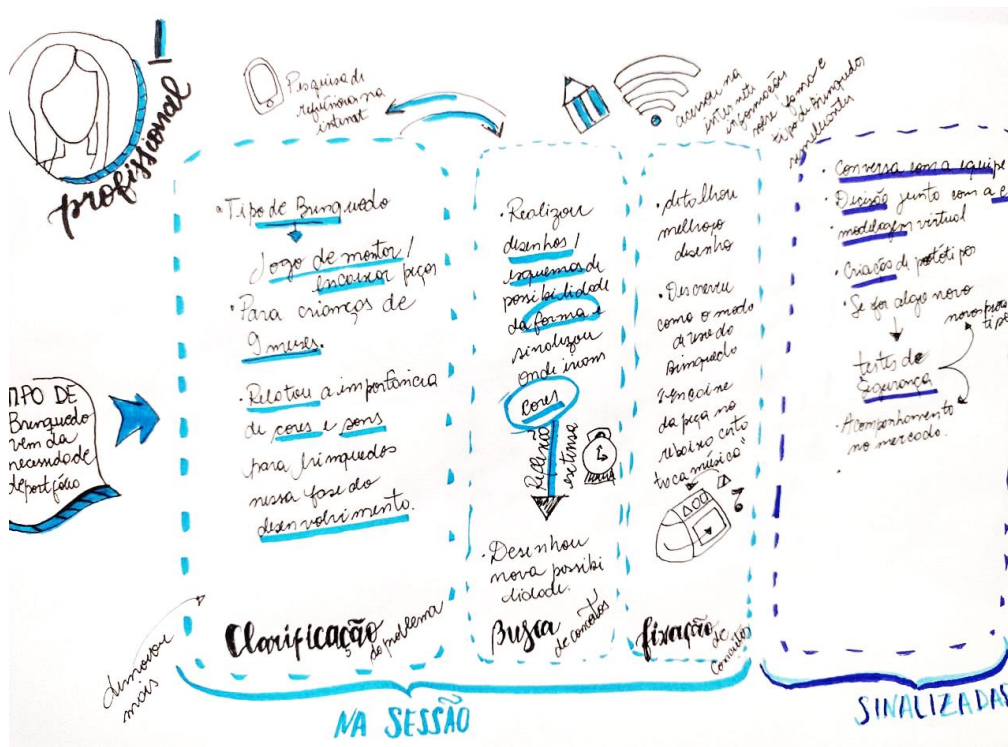 profissional
1
Pesquisa de
referência na
internet
acessou na
internet
informações
sobre forma e
tipo de brinquedos
semelhantes
TIPO DE
Brinquedo
vem da
necessidade
de portfólio
demorou
mais
•Tipo de Brinquedo
Jogo de montar/
encaixar peças
•Para crianças de
9 meses.
•Relatou a importância
de cores e sons
para brinquedos
nessa fase do
desenvolvimento.
Clarificação
do problema
•Realizou
desenhos/
esquemas de
possibilidade
da forma e
sinalizou
onde iriam
cores
Reflexão
extensa
•Desenhou
nova possibi
lidade.
Busca
de conceitos
•detalhou
melhor o
desenho
•Descreveu
como o modo
de uso do
brinquedo
"encaixe
da peça no
rebaixo certo
toca música"
fixação
de
conceitos
NA SESSÃO
•Conversa com a equipe
•Decisão junto com a e
•modelagem virtual
•Criação de protótipos
•Se for algo novo
testes de
segurança
novo protó
tipo
•Acompanhamento
no mercado.
SINALIZADAS